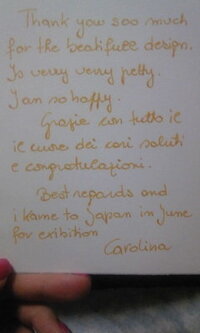 Thank you soo much
for the beatifull design.
Is verry verry petty.
I an so happy.
Grazie con tutto il
il cuore dei cari saluti
e congratulazioni.
Best regards and
i kame to Japan in June
for exibition
Carolina